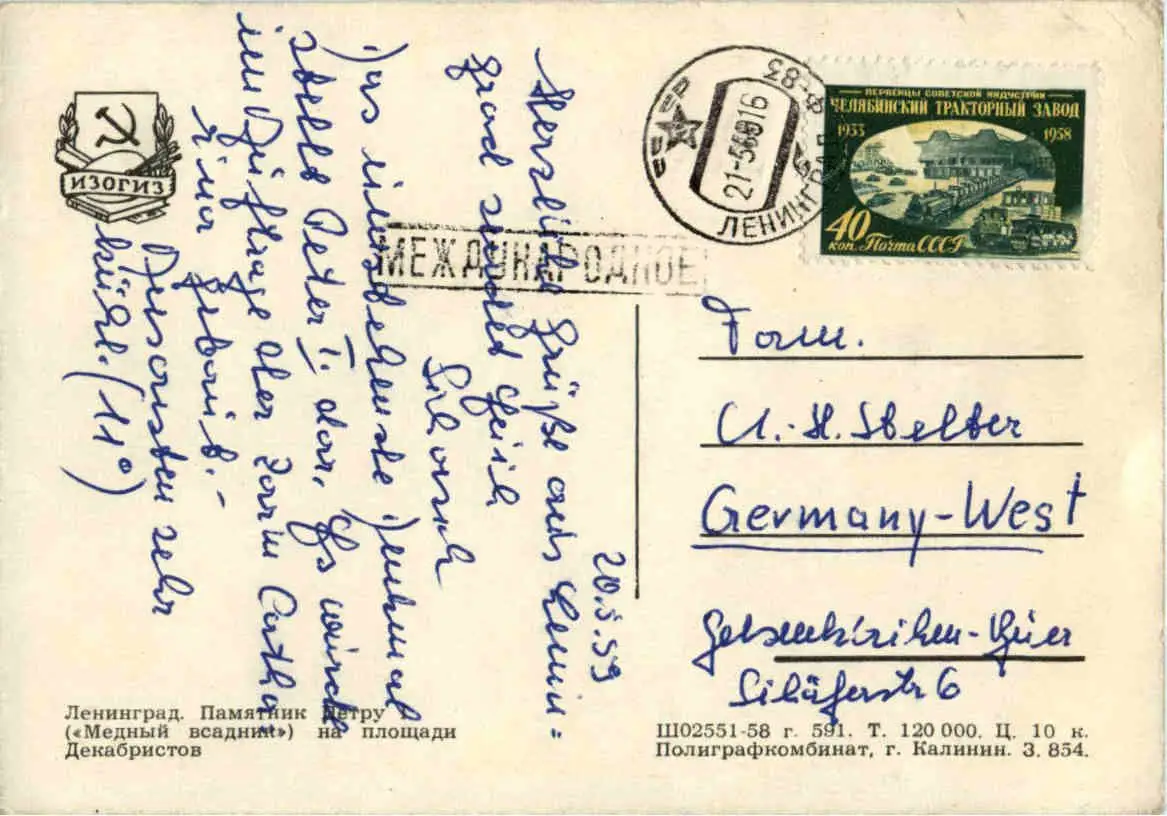 ИЗОГИЗ
ЛЕНИНГРАД Ф-83
ПЕРВЕНЦЫ СОВЕТСКОЙ ИНДУСТРИИ
ЧЕЛЯБИНСКИЙ ТРАКТОРНЫЙ ЗАВОД
1933 1958
40 коп. Почта СССР
МЕЖДУНАРОДНОЕ
20.5.59
Herzliche Grüße aus Lenin=
grad sendet Euch
Das umstehende Denkmal
stellt Peter I. dar, Es wurde
im Auftrage der Zarin Catha-
rina gebaut.-
Ansonsten sehr
kühl. (11°)
Fam.
Stelter
Germany-West
Gelsenkirchen-Buer
Schäferstr 6
Ленинград. Памятник Петру I
(«Медный всадник») на площади
Декабристов
Ш02551-58 г. 591. Т. 120 000. Ц. 10 к.
Полиграфкомбинат, г. Калинин. З. 854.